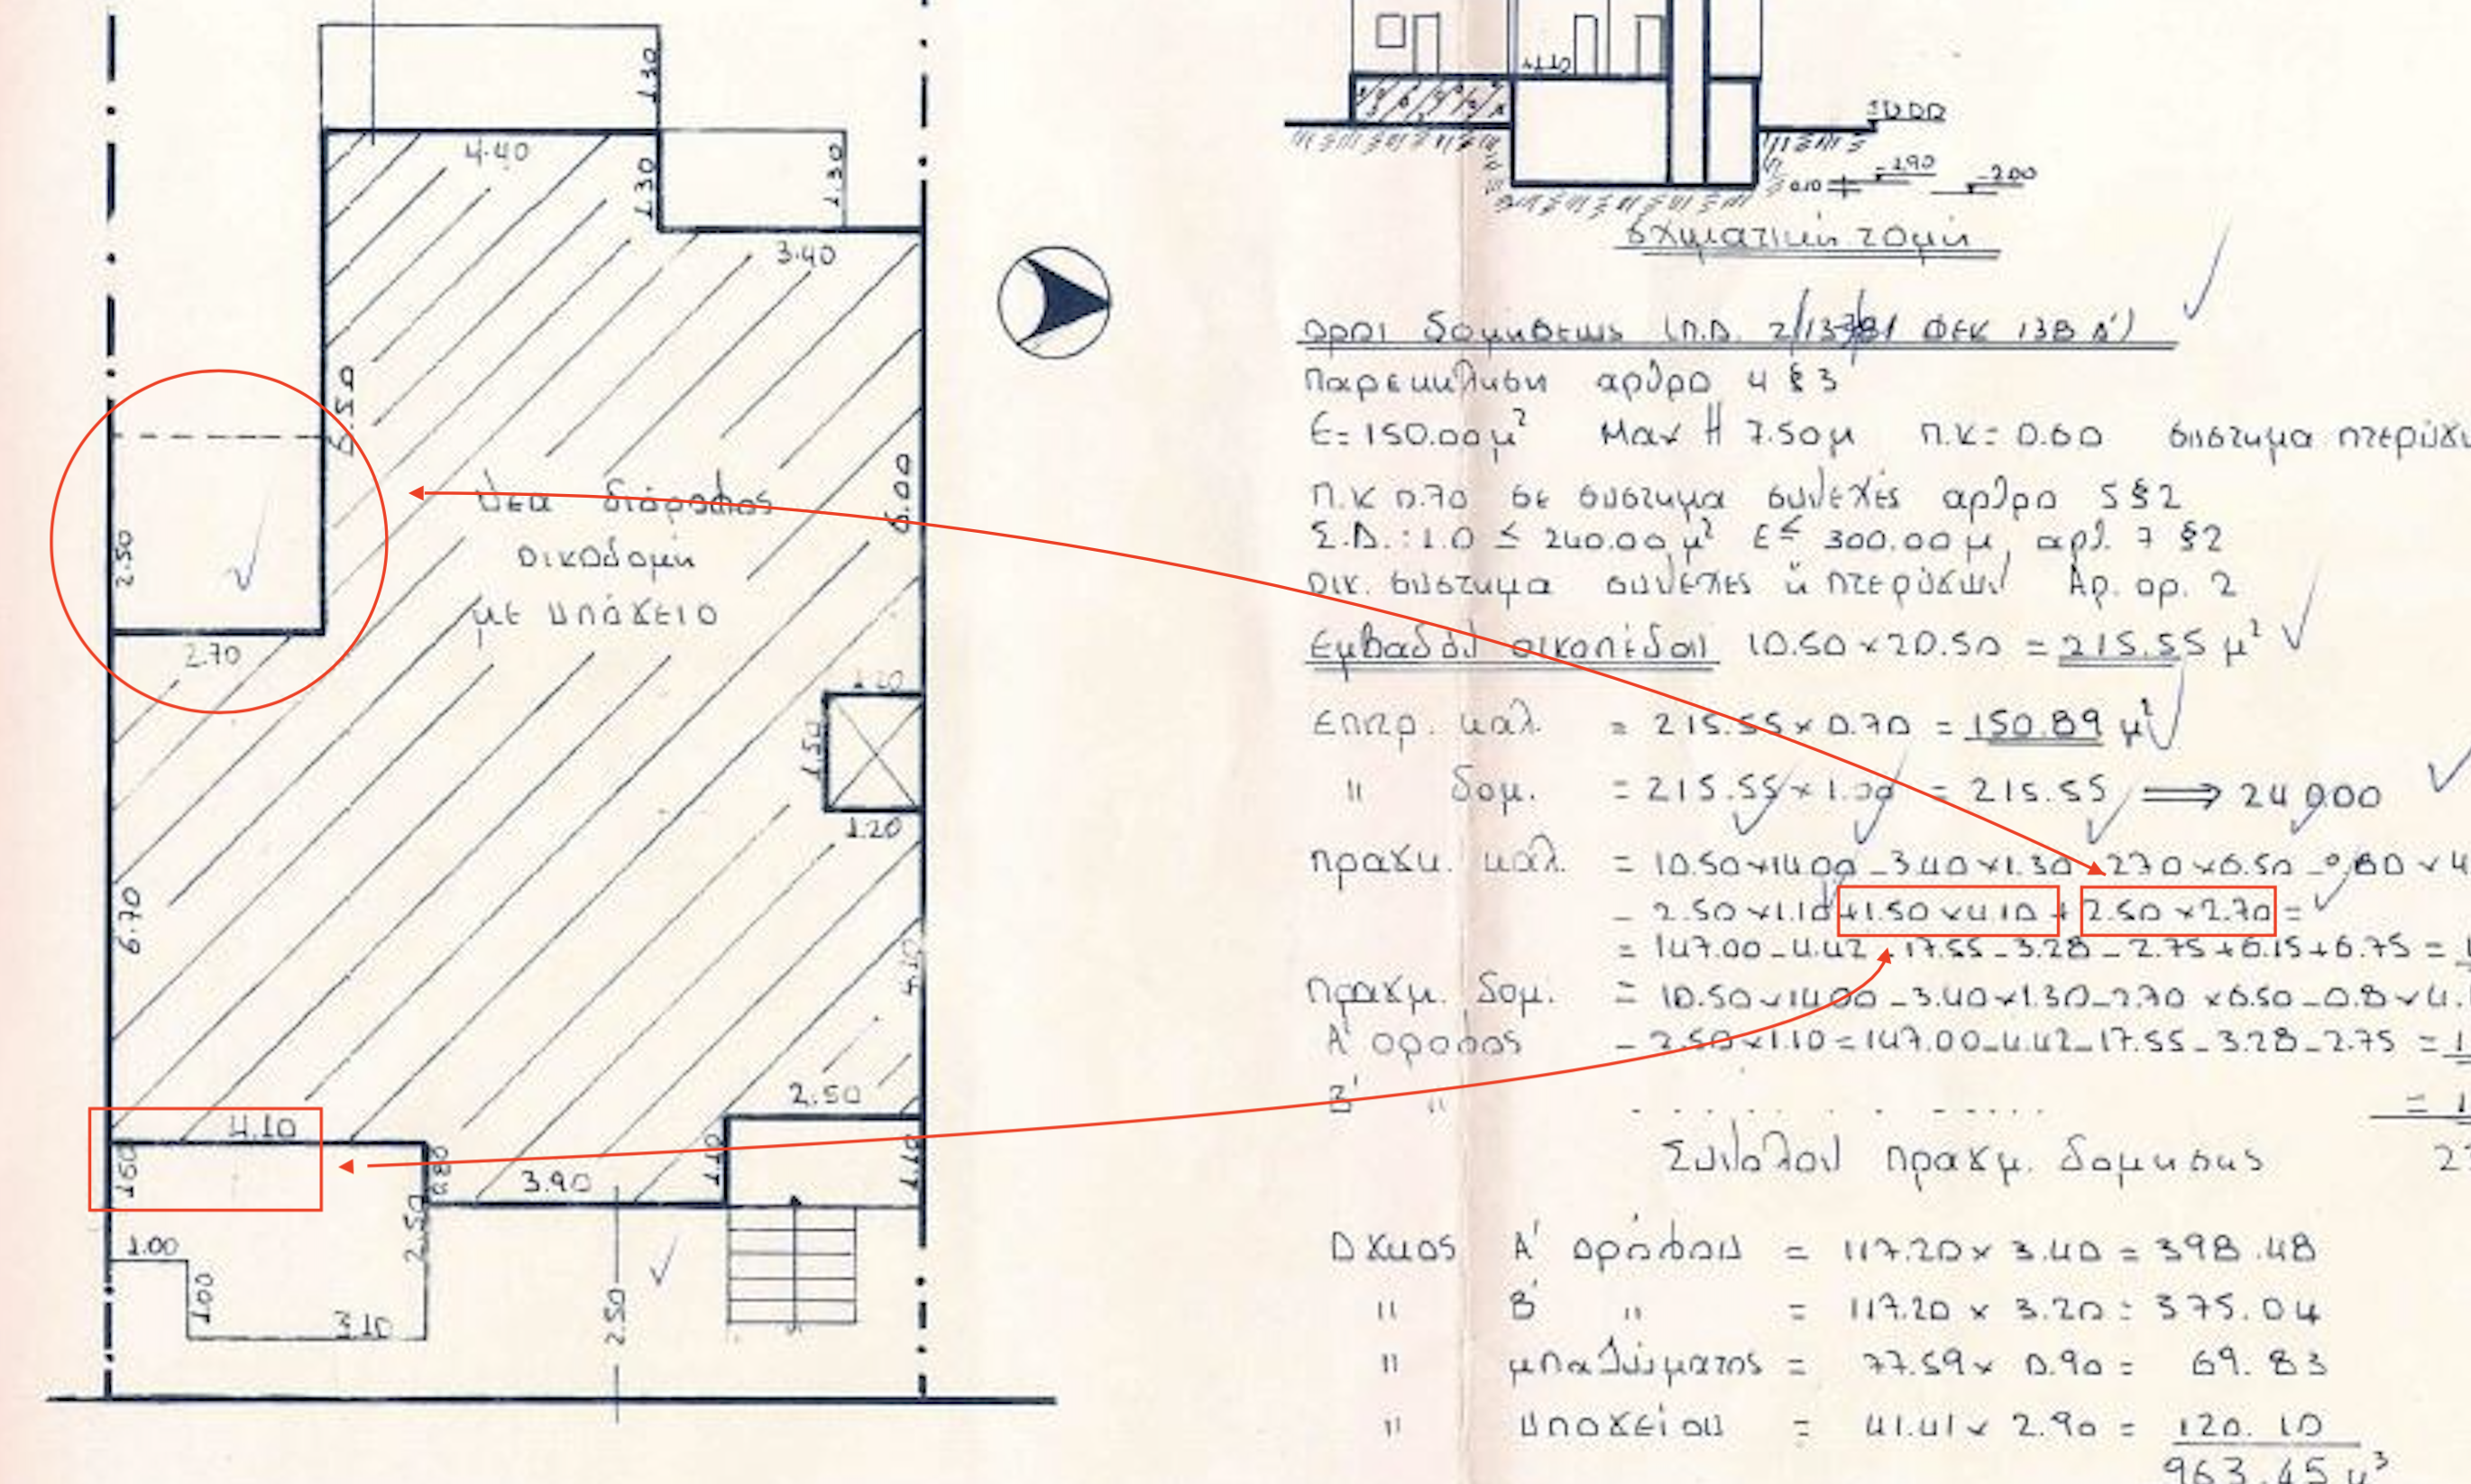 1.30
4.40
1.30
1.30
3.40
6.50
6.00
νέα διόροφος
οικοδομή
με υπόγειο
2.50
2.70
1.20
1.50
1.20
6.70
4.10
4.10
1.50
0.80
2.50
1.10
1.10
3.90
1.00
1.00
2.50
3.10
2.50
0.10
-1.90
-2.00
σχηματική τομή
όροι δομήσεως (Π.Δ. 2/13 81 ΦΕΚ 138 Δ')
Παρέκκλιση άρθρο 4 § 3
Ε=150.00μ² Max H 7.50μ Π.Κ= 0.60 σύστημα
Π.Κ 0.70 σε σύστημα συνεχές άρθρο 5 § 2
Σ.Δ.: 1.0 ≤ 240.00 μ² Ε≤ 300.00 μ, αρθ. 7 § 2
οικ. σύστημα συνεχές ή πτερύγων Αρ. ορ. 2
Εμβαδόν οικοπέδου 10.50 × 20.50 = 215.55 μ²
Επιτρ. καλ. = 215.55 × 0.70 = 150.89 μ²
" δομ. = 215.55 × 1.00 = 215.55 ⟹ 240.00
πραγμ. καλ. = 10.50×14.00 - 3.40×1.30 - 2.70×6.50 - 0.80 × 4
- 2.50 × 1.10 + 1.50 × 4.10 + 2.50 × 2.70 =
= 147.00 - 4.42 - 17.55 - 3.28 - 2.75 + 6.15 + 6.75 =
πραγμ. δομ. = 10.50×14.00 - 3.40×1.30 - 2.70 × 6.50 - 0.8 × 4.
Α' όροφος - 2.50 × 1.10 = 147.00 - 4.42 - 17.55 - 3.28 - 2.75 =
Β' " . . . . . . . . . =
Σύνολον πραγμ. δομήσης
Όγκος Α' ορόφου = 117.20 × 3.40 = 398.48
" Β' " = 117.20 × 3.20 = 375.04
" μπαζώματος = 77.59 × 0.90 = 69.83
" υπογείου = 41.41 × 2.90 = 120.10
963.45 μ³